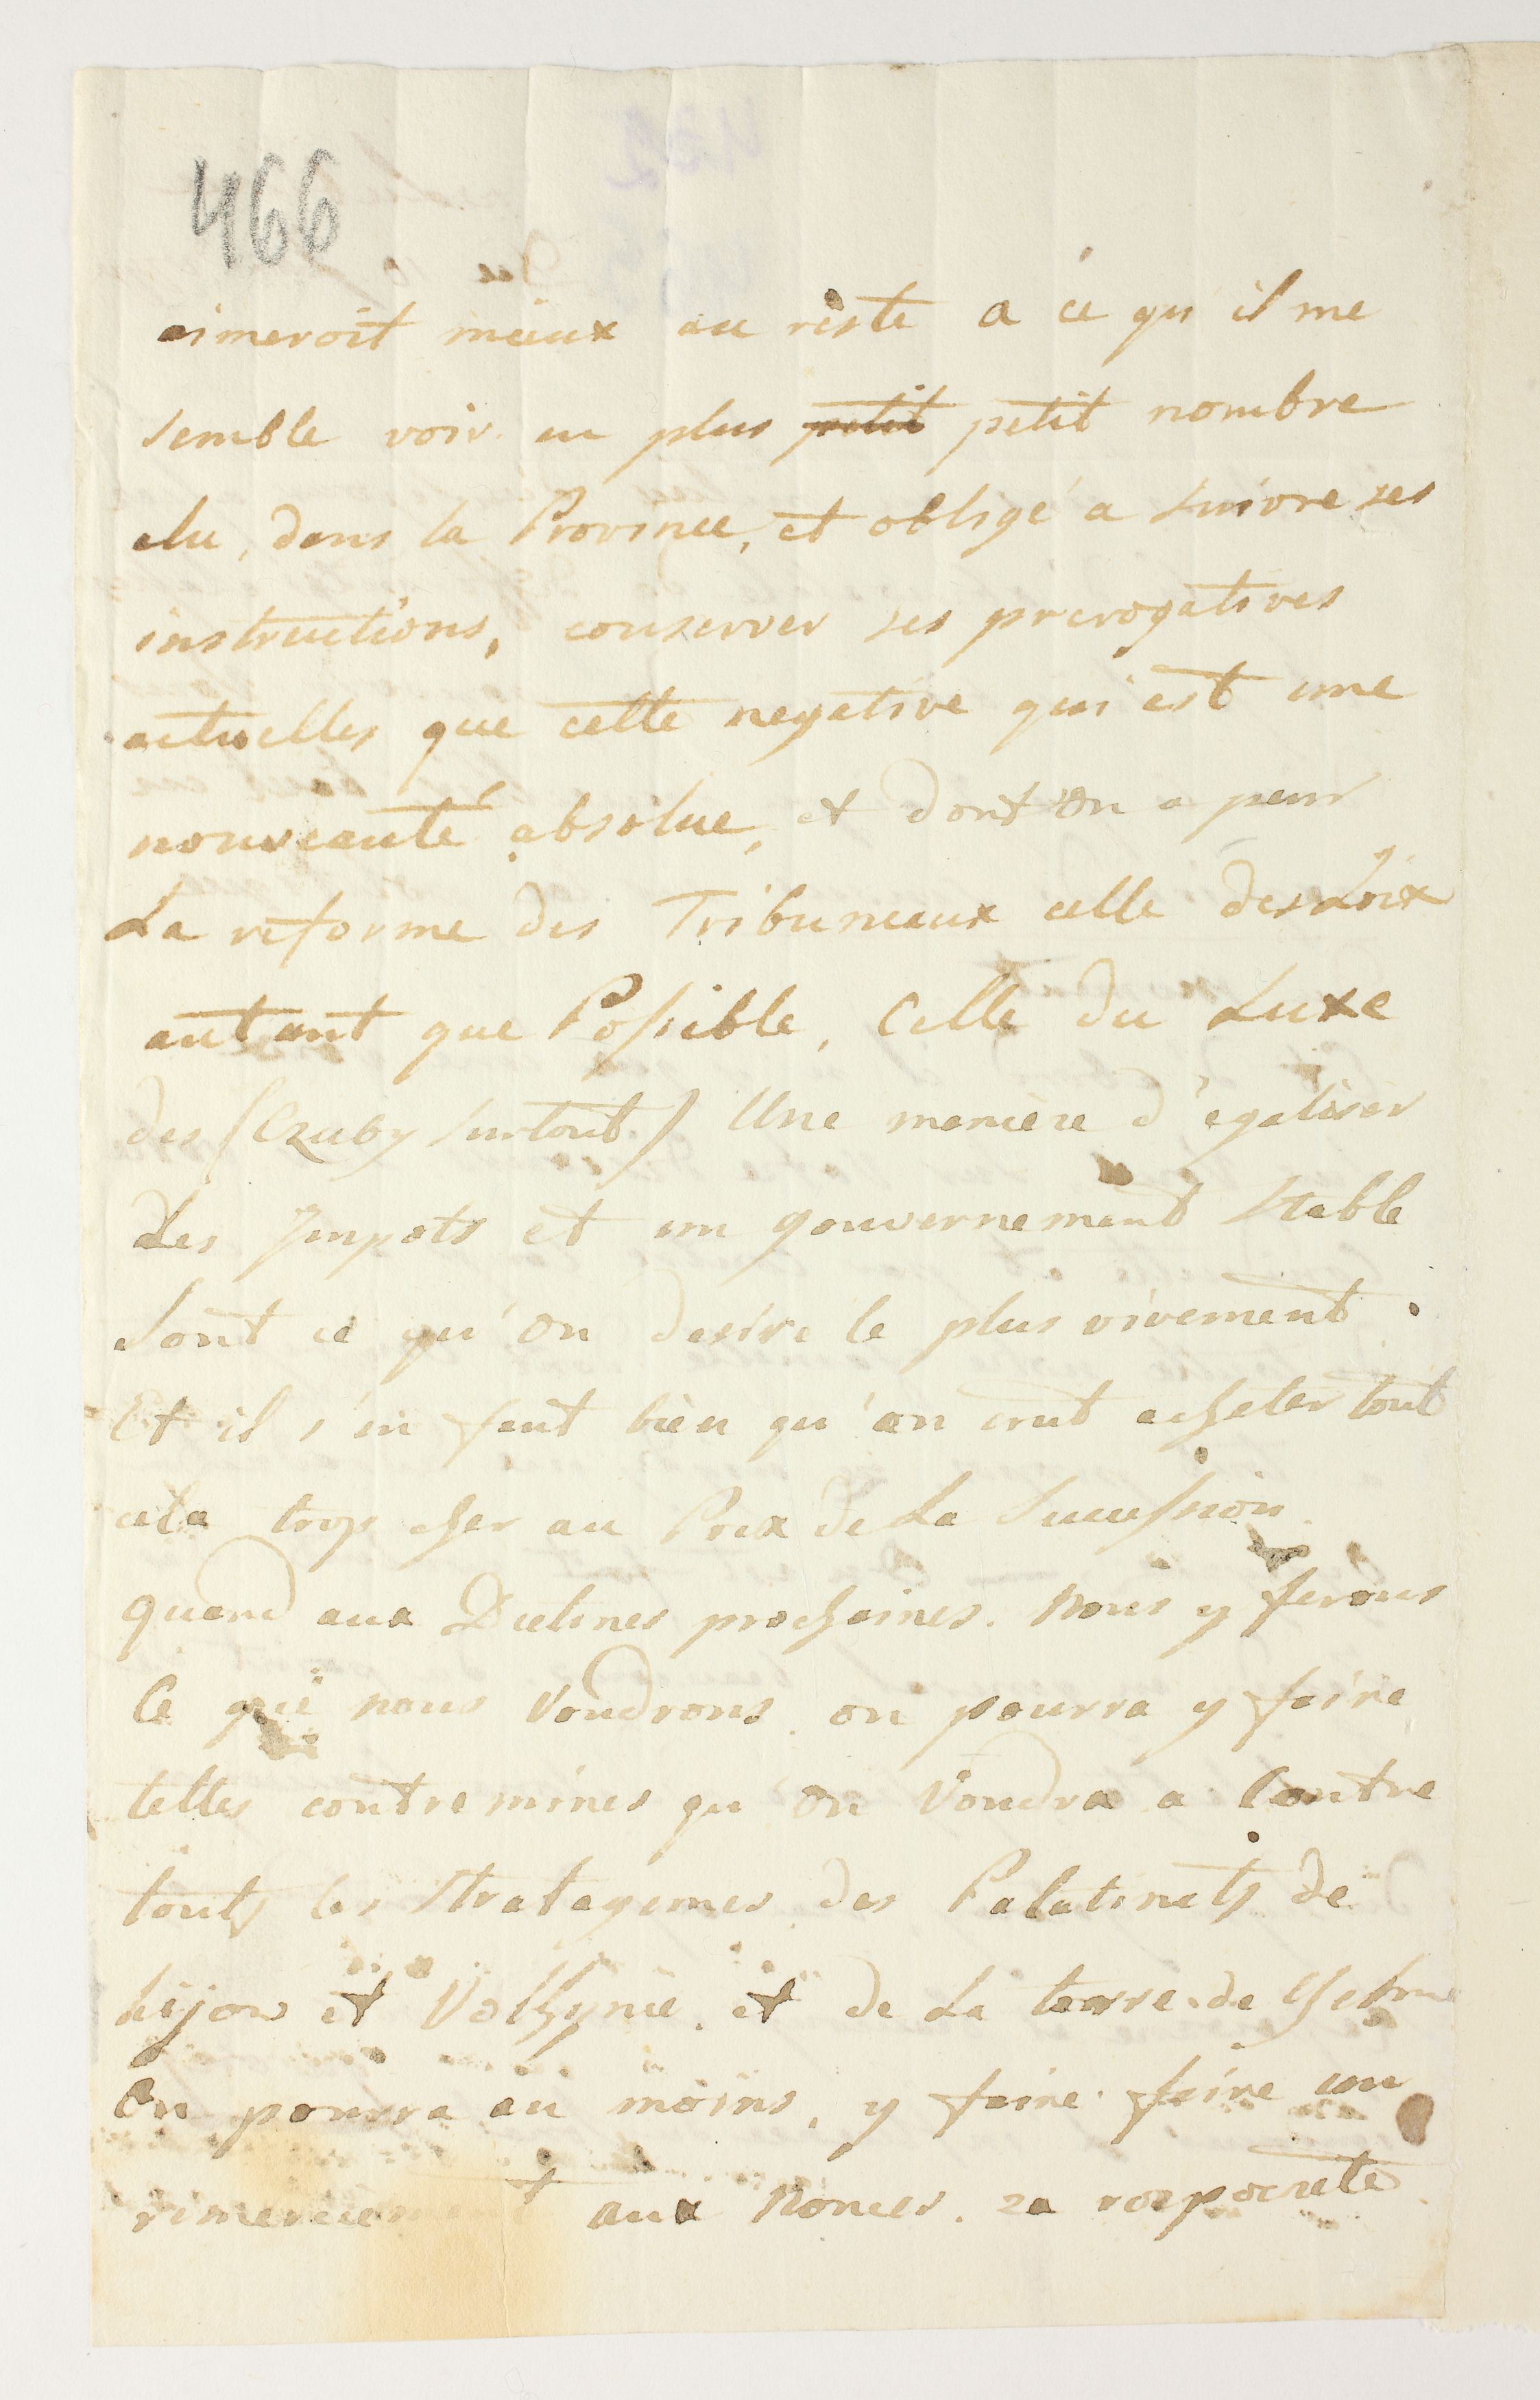 466
aimeroit mieux au reste a ce qu il me
semble voir un plus petit petit nombre
elu, dans la Province, et obligé a suivre ses
instructions, conserver ses prerogatives
actuelles que cette negative qui est une
nouveauté absolue, et dont on a peur
La reforme des Tribuneaux celle des Loix
autant que Possible, Celle du Luxe
des (Czuby surtout) Une maniere d'egaliser
Les Impots et un gouvernement stable
sont ce qu'on desire le plus vivement.
Et il s'en faut bien qu'on crut acheter tout
cela trop cher au Prix de La Succession.
quand aux Dietines prochaines. Nous y ferons
Ce que nous Voudrons. on pourra y faire
telles contremines qu'on Voudra a Contre
touts les Stratagemes des Palatinats de
Kijow et Volhynie. et de La terre de Chelm
On pourra au moins, y faire faire un
aux Nonces. za rozpoczete